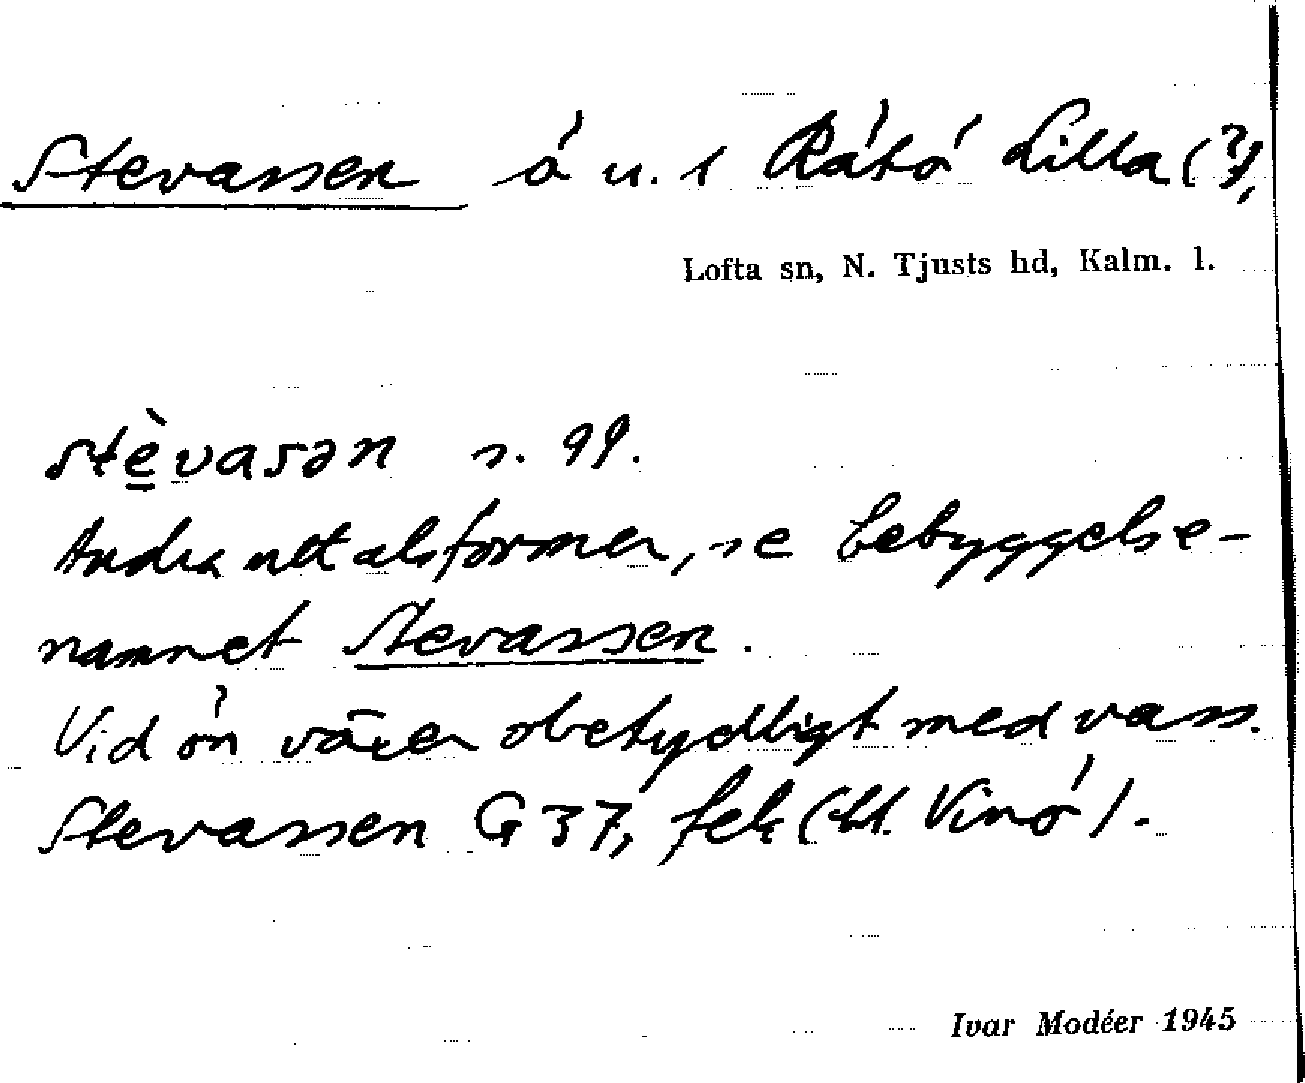 Stevassen ö u. t Rátö Lilla (?),
Lofta sn, N. Tjusts hd, Kalm. l.
stèvasən s. 99.
Andra uttalsformer, se bebyggelse-
namnet Stevassen.
Vid ön växer obetydligt med vass.
Stevassen G 37, (bl. Vinö).
Ivar Modéer 1945